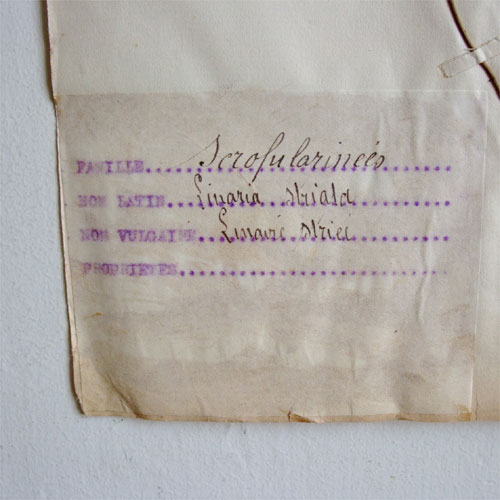 FAMILLE.....Scrofularinées
NOM LATIN...Linaria striata
NOM VULGAIRE..Linaire striée
PROPRIETES.....